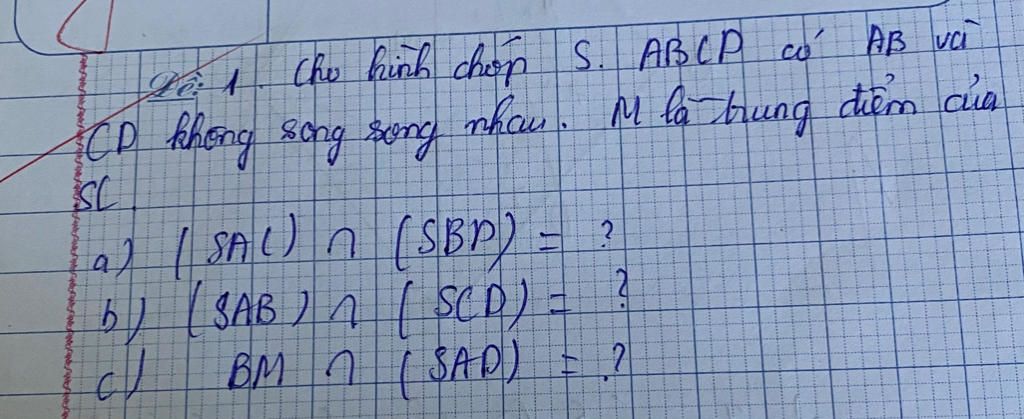 Đề: 1. Cho hình chóp S. ABCD có AB và
CD không song song nhau. M là trung điểm của
SC
a) (SAC) ∩ (SBD) = ?
b) (SAB) ∩ (SCD) = ?
c) BM ∩ (SAD) = ?